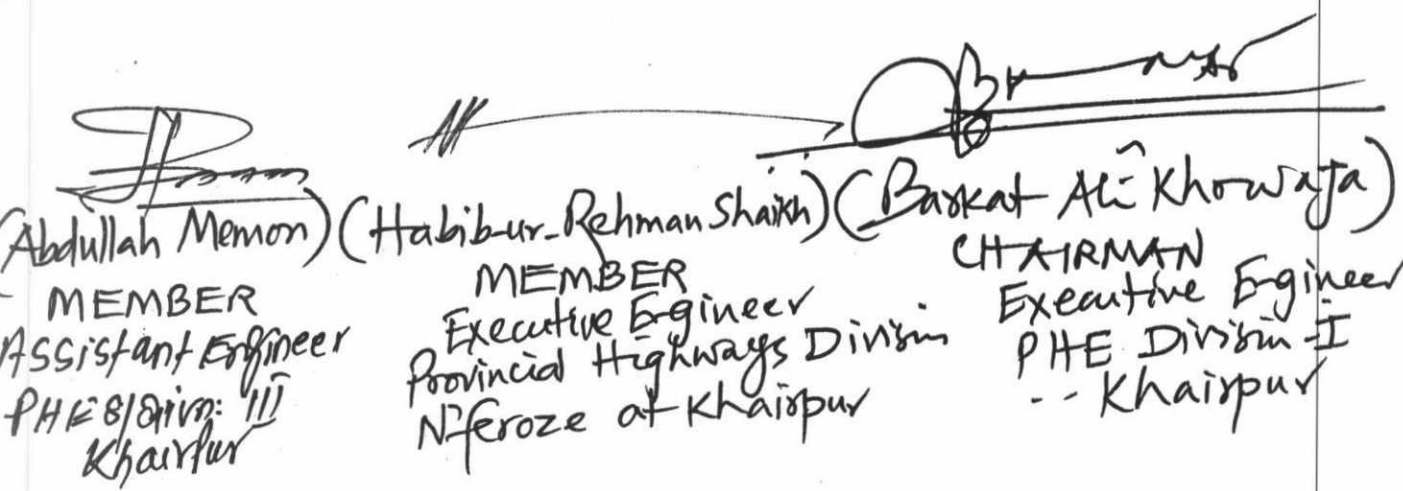 (Abdullah Memon)
MEMBER
Assistant Engineer
PHE S/Divn: III
Khairpur
(Habib-ur-Rehman Shaikh)
MEMBER
Executive Engineer
Provincial Highways Division
N'feroze at Khairpur
(Barkat Ali Khowaja)
CHAIRMAN
Executive Engineer
PHE Division-I
Khairpur